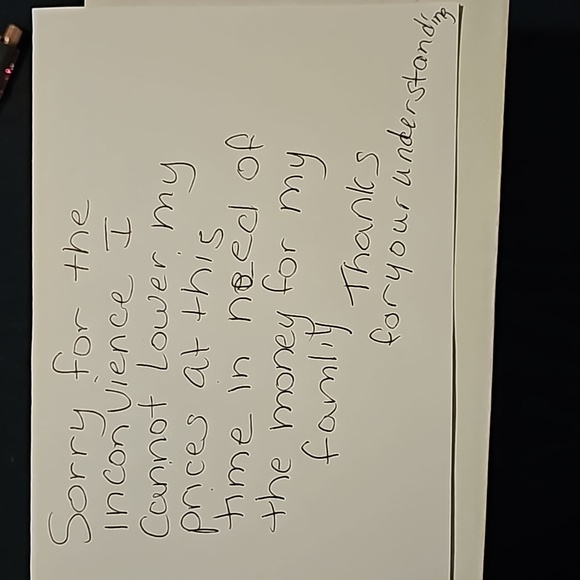 Sorry for the
inconvience I
cannot Lower my
prices at this
time in need of
the money for my
familiy
Thanks
for your understanding